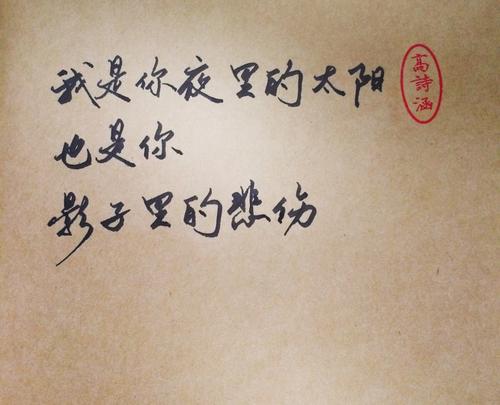 我是你夜里的太阳
也是你
影子里的悲伤
高詩涵